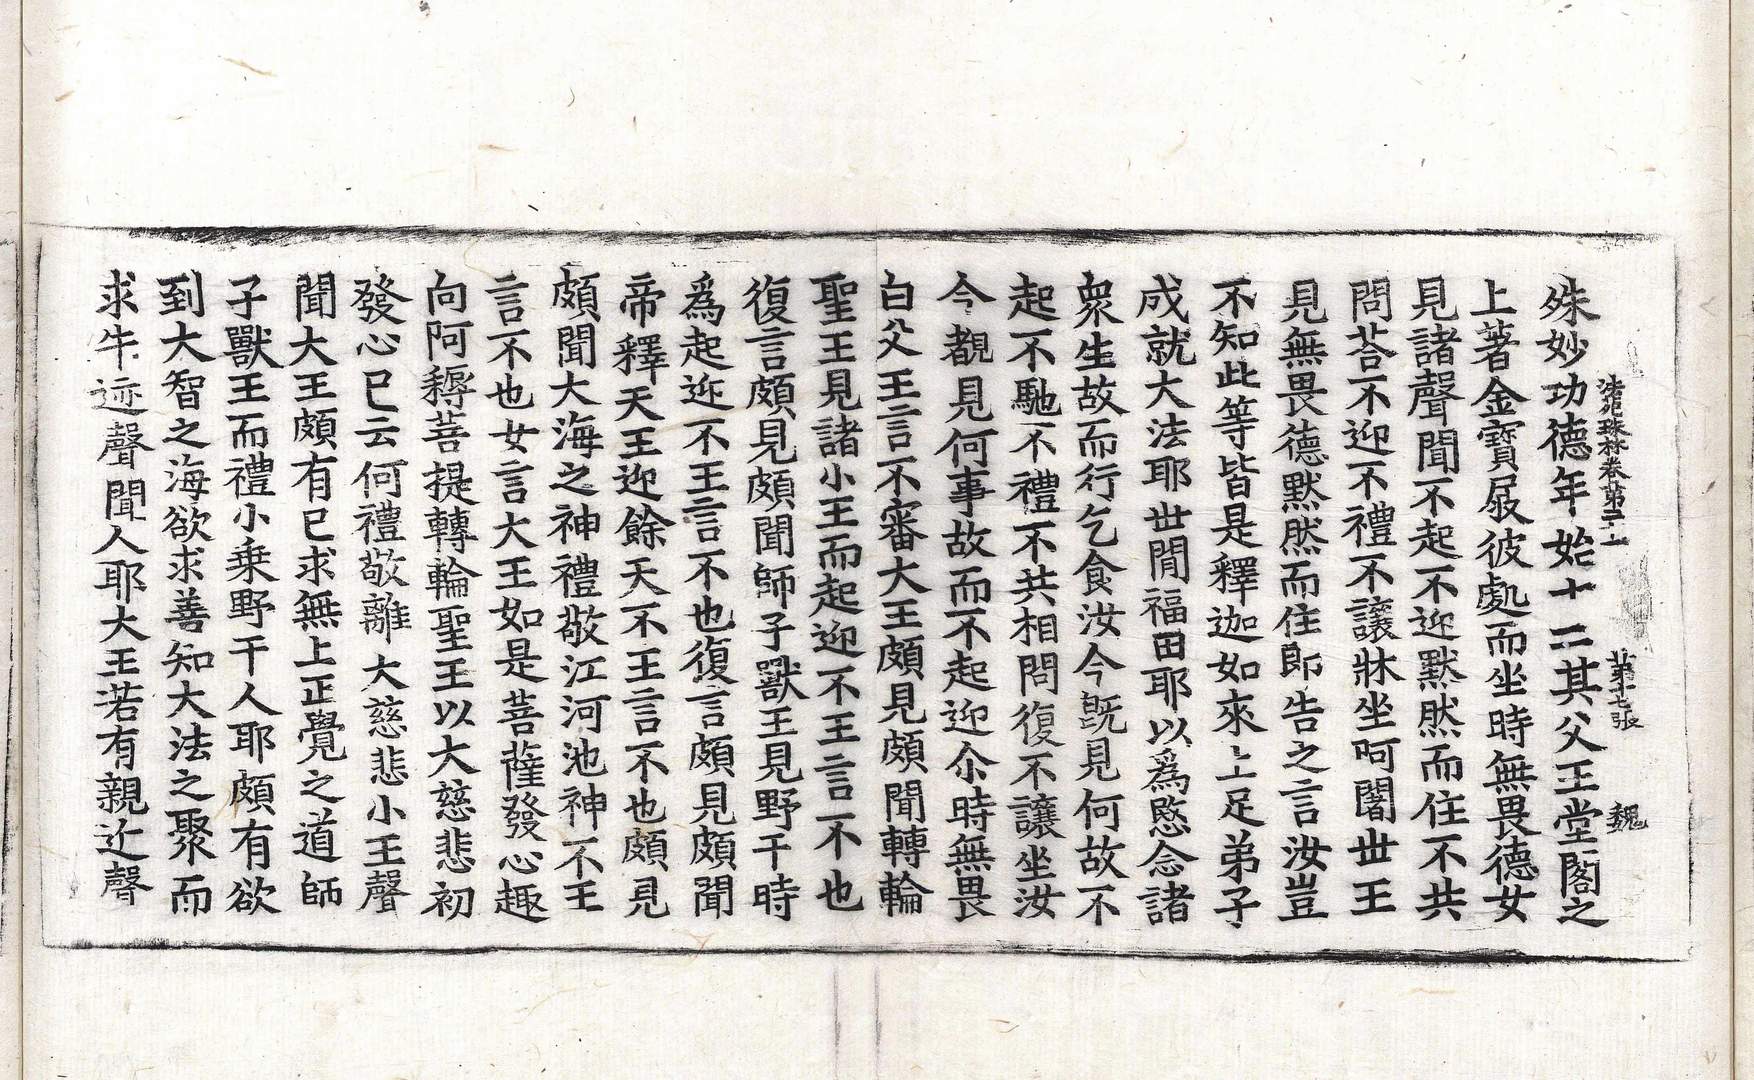 法苑珠林卷第二十一　第十七張　魏
殊妙功德年始十二其父王堂閣之
上著金寶屐彼處而坐時無畏德女
見諸聲聞不起不迎默然而住不共
問荅不迎不禮不讓牀坐阿闍世王
見無畏德默然而住即告之言汝豈
不知此等皆是釋迦如來上足弟子
成就大法耶世間福田耶以爲愍念諸
衆生故而行乞食汝今旣見何故不
起不馳不禮不共相問復不讓坐汝
今覩見何事故而不起迎尒時無畏
白父王言不審大王頗見頗聞轉輪
聖王見諸小王而起迎不王言不也
復言頗見頗聞師子獸王見野干時
爲起迎不王言不也復言頗見頗聞
帝釋天王迎餘天不王言不也頗見
頗聞大海之神禮敬江河池神不王
言不也女言大王如是菩薩發心趣
向阿耨菩提轉輪聖王以大慈悲初
發心已云何禮敬離大慈悲小王聲
聞大王頗有已求無上正覺之道師
子獸王而禮小乗野干人耶頗有欲
到大智之海欲求善知大法之聚而
求牛迹聲聞人耶大王若有親近聲